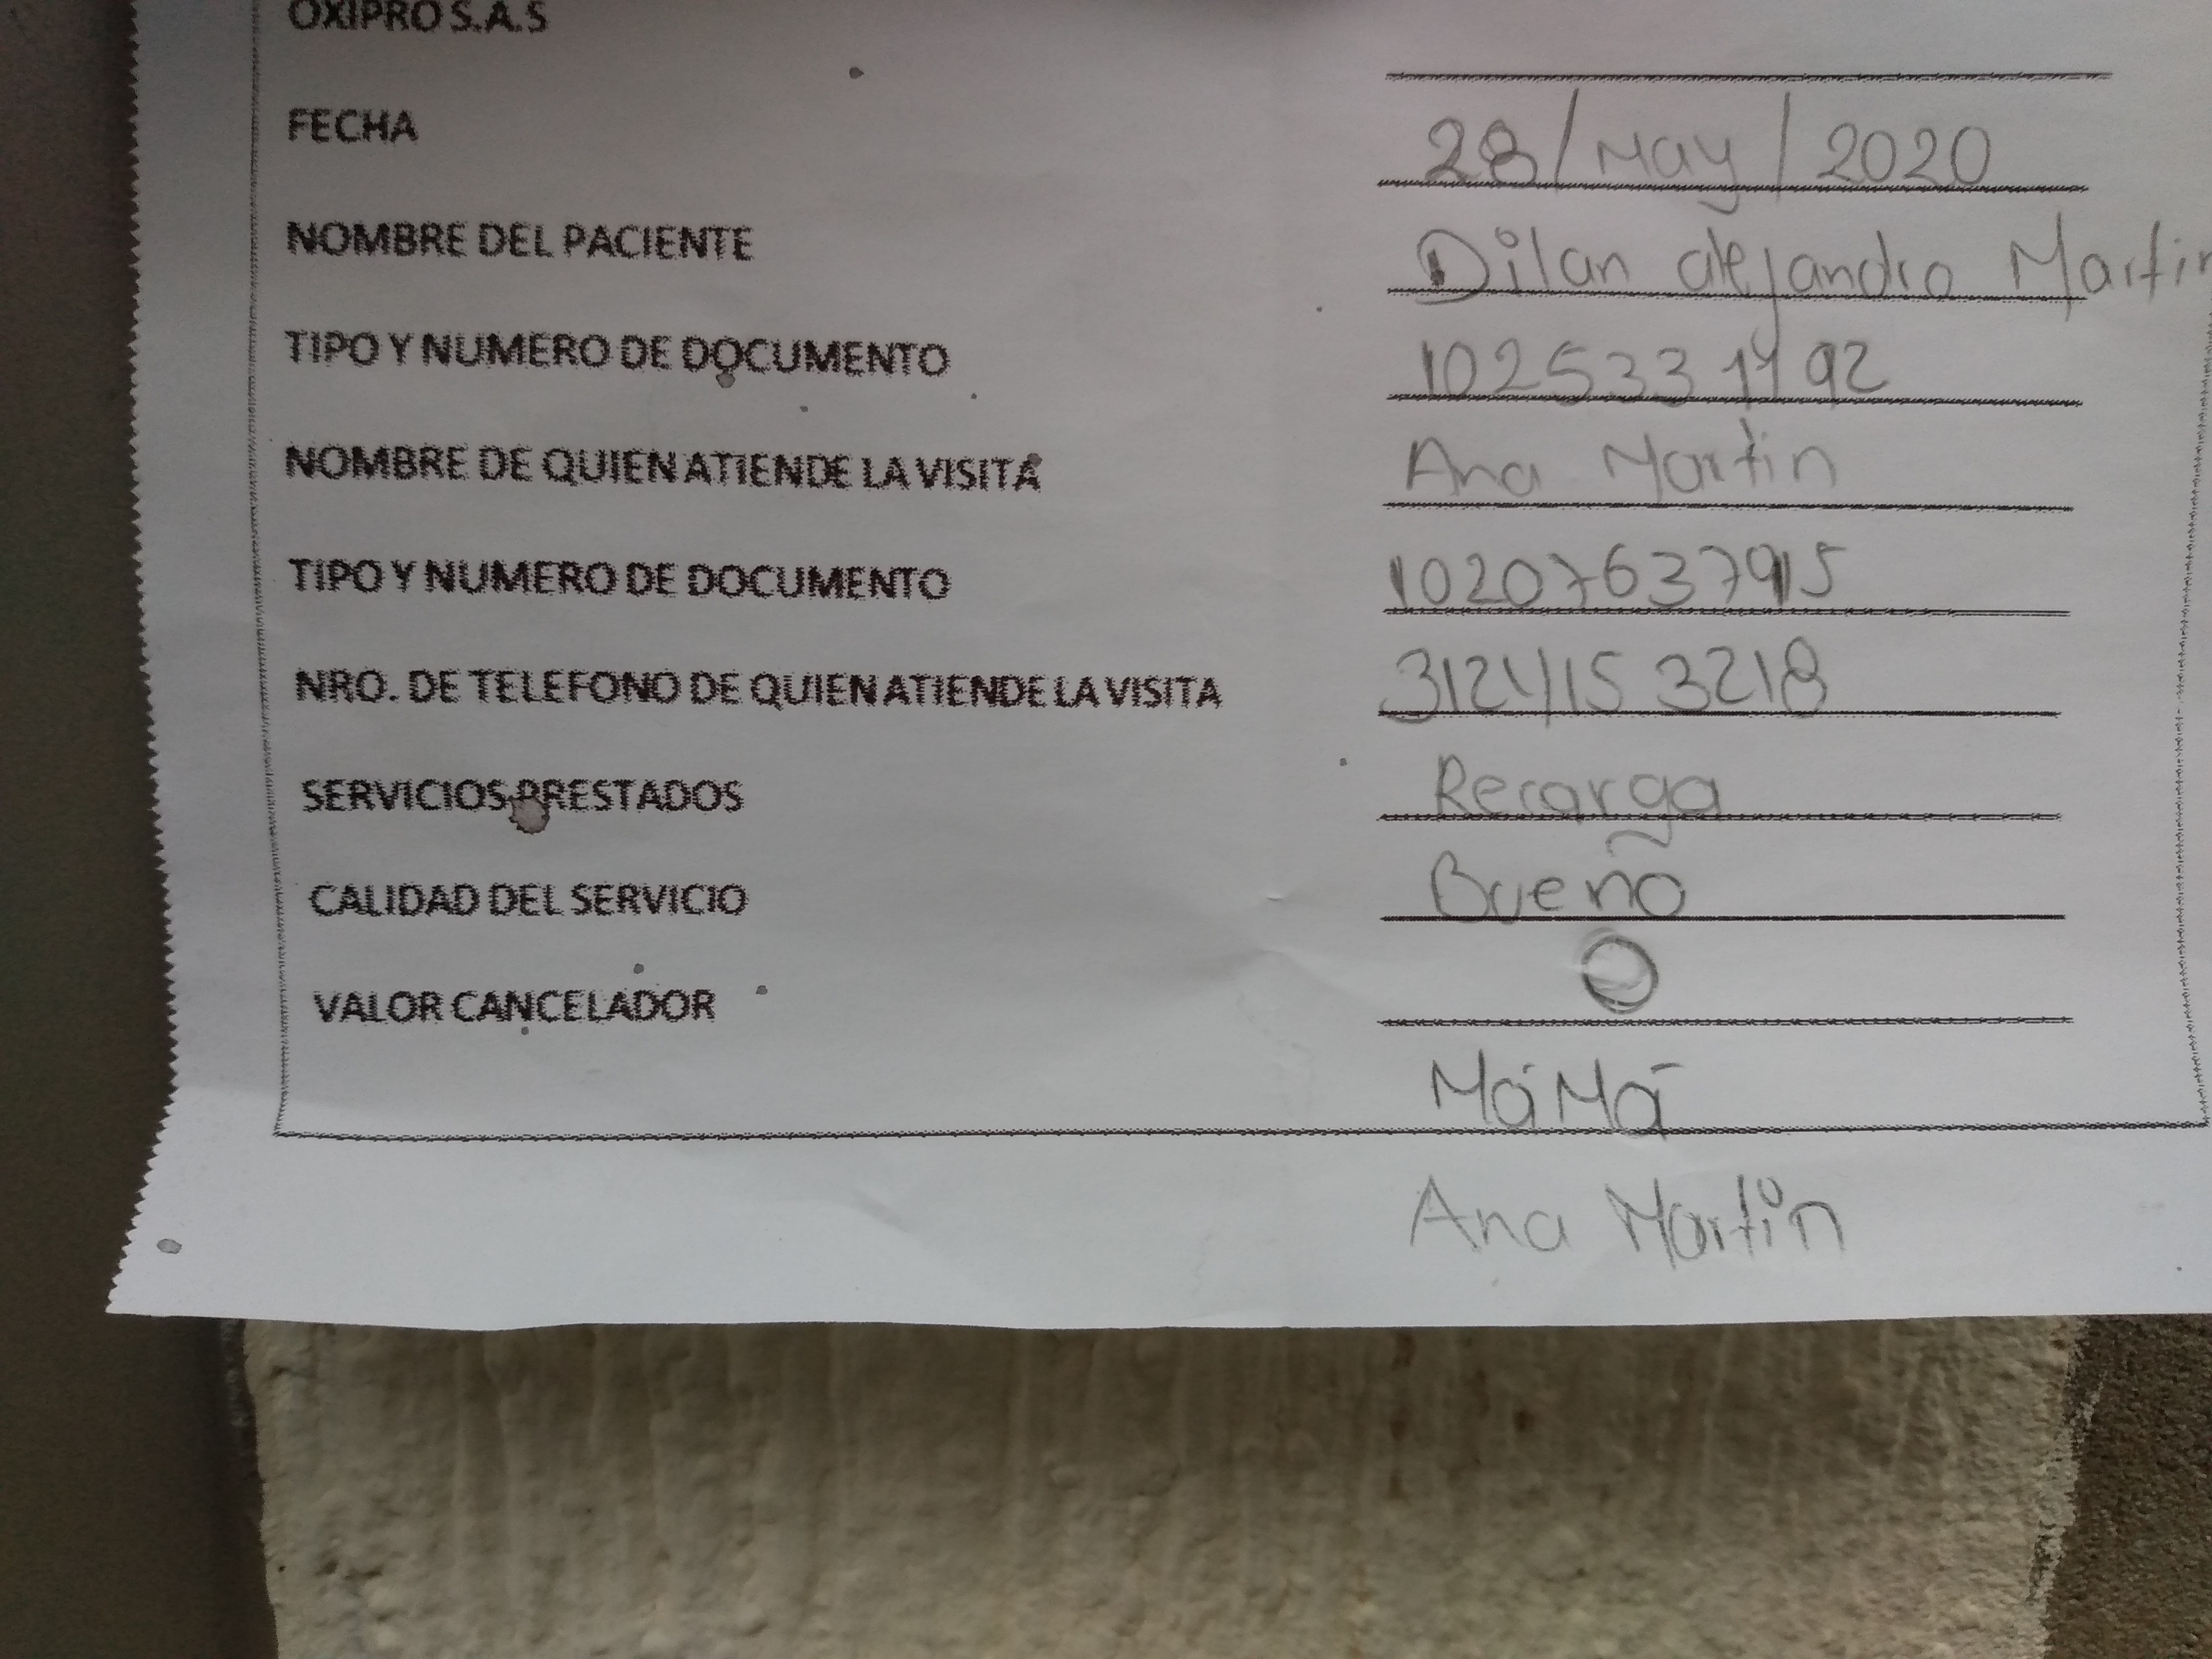 OXIPRO S.A.S
FECHA 28/May/2020
NOMBRE DEL PACIENTE Dilan alejandro Martin
TIPO Y NUMERO DE DOCUMENTO
NOMBRE DE QUIEN ATIENDE LA VISITA Ana Martin
TIPO Y NUMERO DE DOCUMENTO 10207637915
NRO. DE TELEFONO DE QUIEN ATIENDE LA VISITA 3124153218
SERVICIOS PRESTADOS Recarga
CALIDAD DEL SERVICIO Bueno
VALOR CANCELADOR O
MáMá
Ana Martin